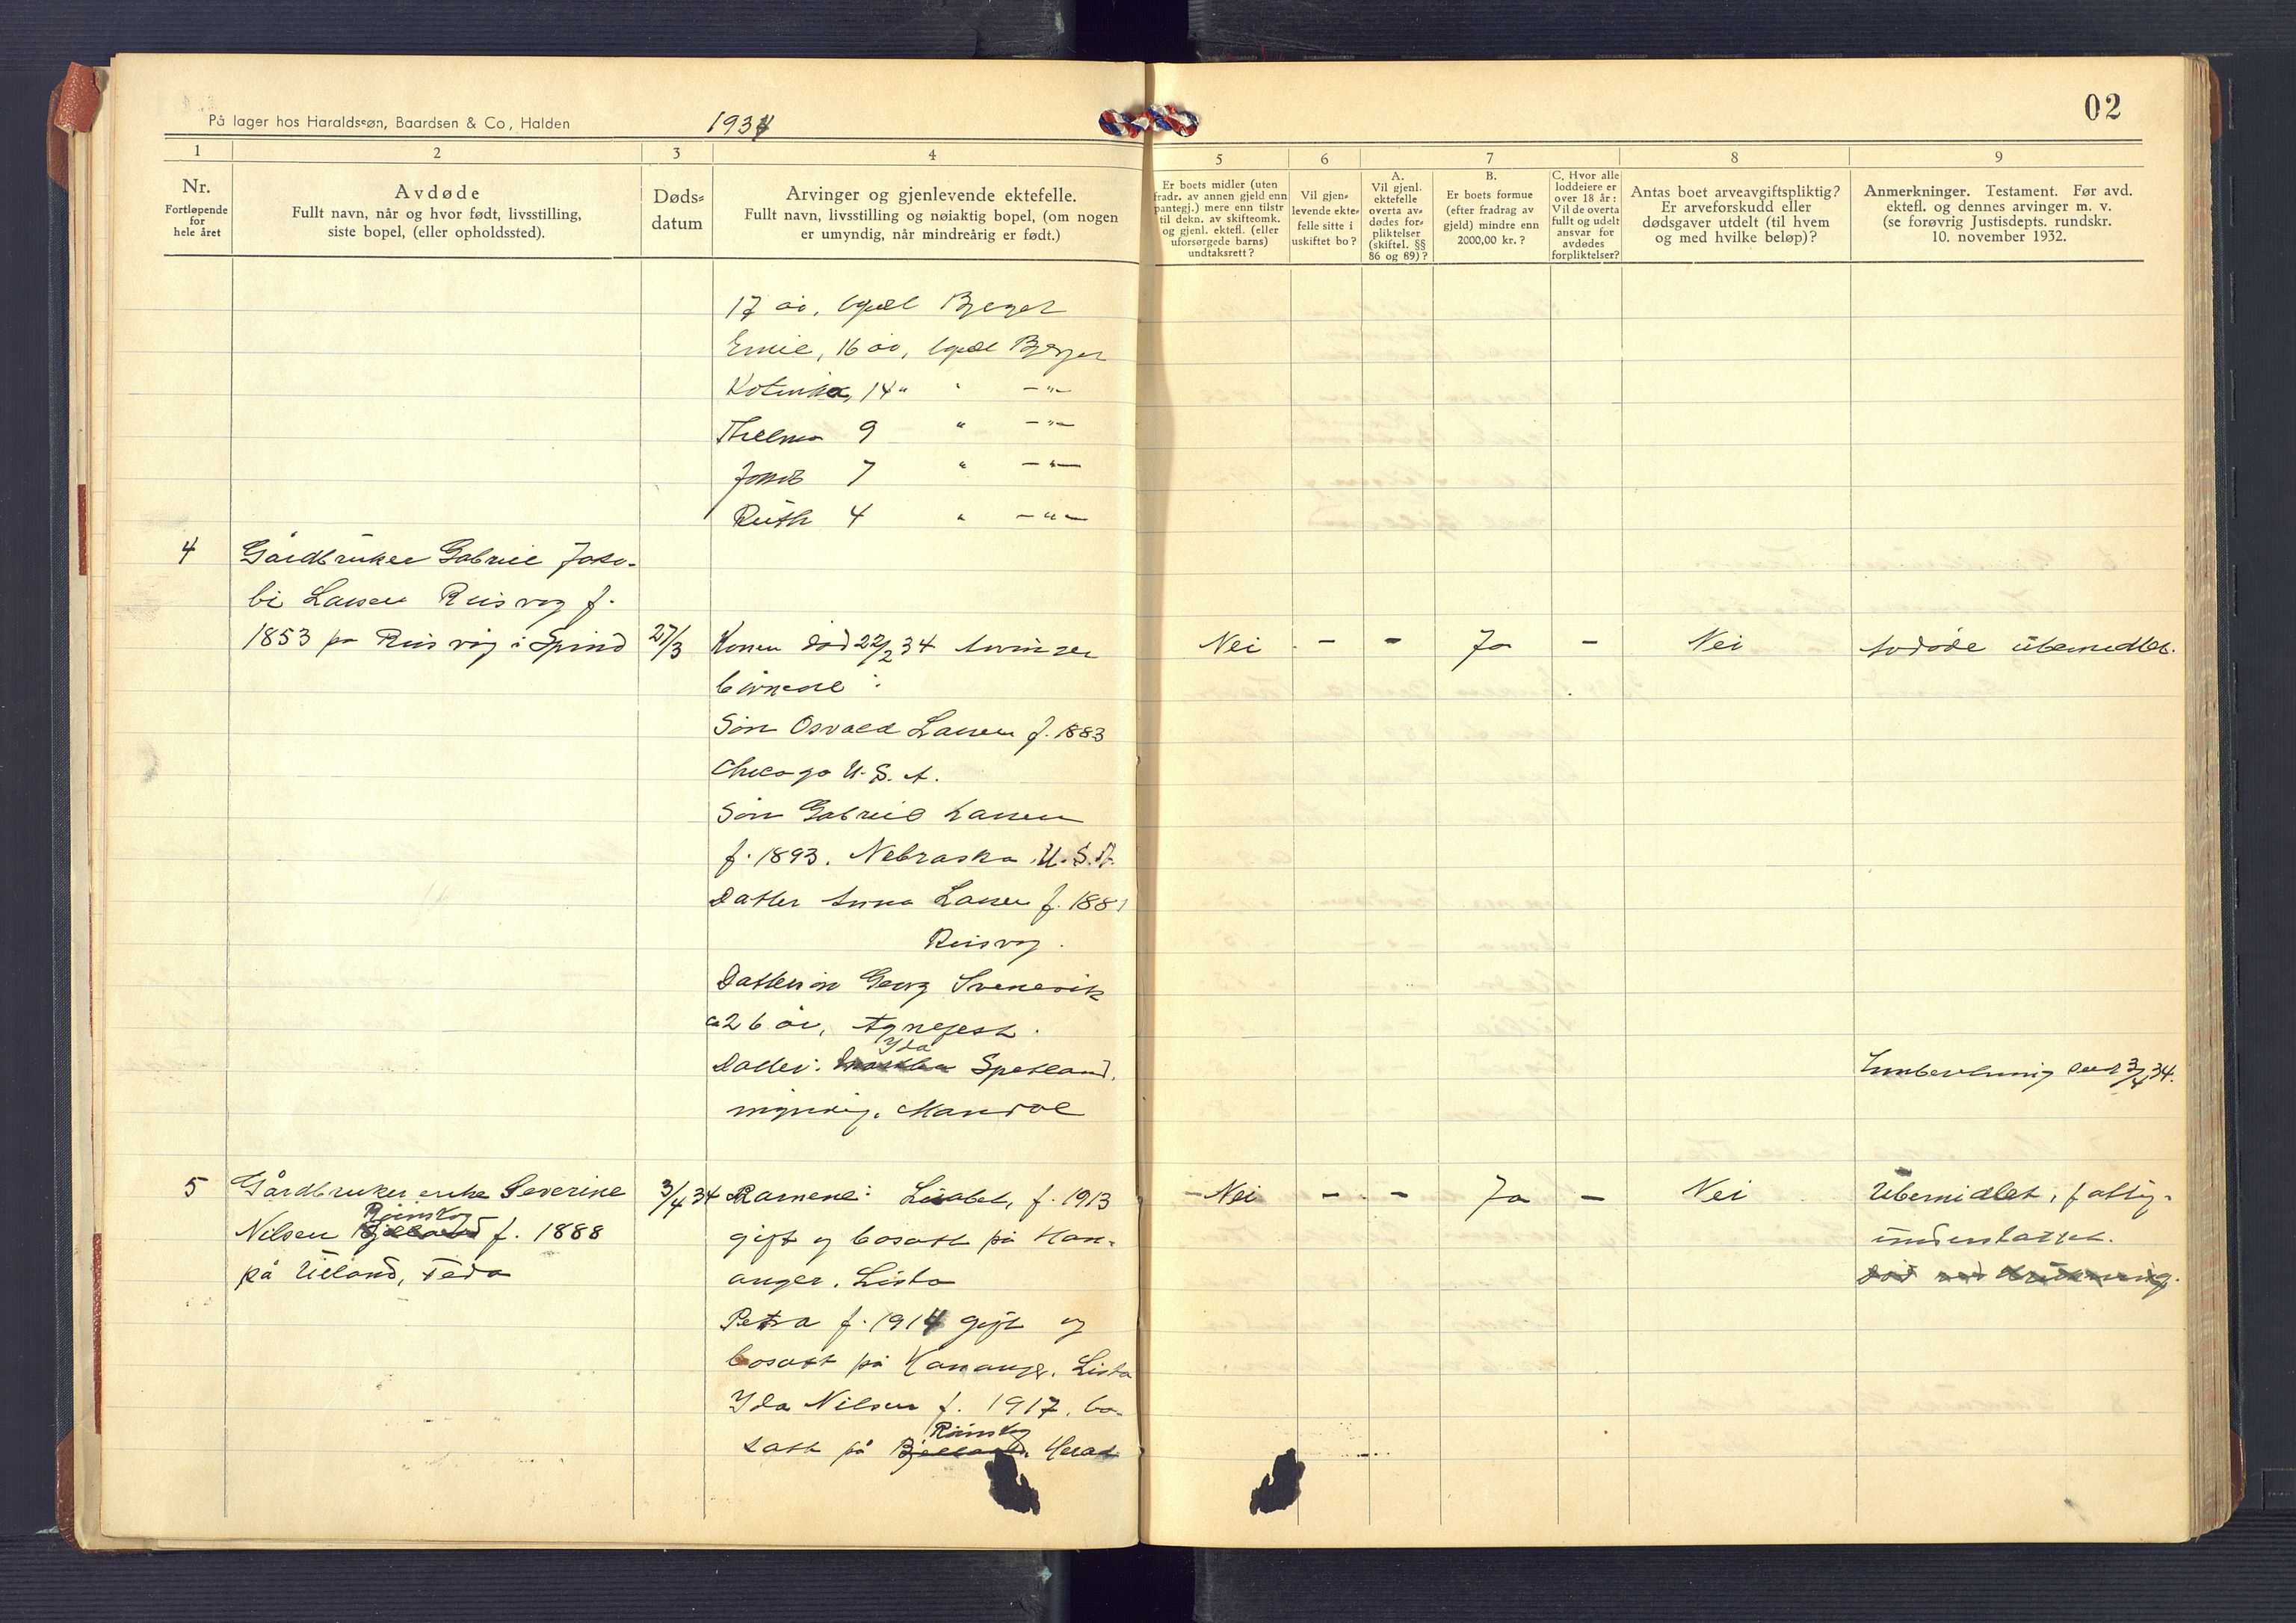 På lager hos Haraldssøn, Baardsen & Co, Halden
1934
02
1
2
3
4
5
6
7
8
9
Nr.
Fortløpende
for
hele året
Avdøde
Fullt navn, når og hvor født, livsstilling,
siste bopel, (eller opholdssted).
Døds-
datum
Arvinger og gjenlevende ektefelle.
Fullt navn, livsstilling og nøiaktig bopel, (om nogen
er umyndig, når mindreårig er født.)
Er boets midler (uten
fradr. av annen gjeld enn
pantegj.) mere enn tilstr
til dekn. av skifteomk.
og gjenl. ektefl. (eller
uforsørgede barns)
undtaksrett?
Vil gjen-
levende ekte-
felle sitte i
uskiftet bo?
A.
Vil gjenl.
ektefelle
overta av-
dødes for-
pliktelser
(skiftel. §§
86 og 89)?
B.
Er boets formue
(efter fradrag av
gjeld) mindre enn
2000,00 kr.?
C. Hvor alle
loddeiere er
over 18 år:
Vil de overta
fullt og udelt
ansvar for
avdødes
forpliktelser?
Antas boet arveavgiftspliktig?
Er arveforskudd eller
dødsgaver utdelt (til hvem
og med hvilke beløp)?
Anmerkninger. Testament. Før avd.
ektefl. og dennes arvinger m. v.
(se forøvrig Justisdepts. rundskr.
10. november 1932.
17 år,
Emil, 16 år,
14 " " - " -
Thelma 9 " - " -
Jakob 7 " - " -
Ruth 4 " - " -
4
Gårdbruker Gabriel Jako-
bi Larsen Reisvåg f.
1853 på Reisvåg i Spind
27/3
Konen død 22/2 34 Arvinger
børnene:
Nei - - Ja - Nei
Avdøde ubemidlet.
Søn Osvald Larsen f. 1883
Chicago U.S.A.
Søn Gabriel Larsen
f. 1893. Nebraska U.S.A.
Datter Anna Larsen f. 1881
Reisvåg.
Dattersøn Georg Svenevik
ca 26 år, Agnefest.
Yda
Datter: Spetland,
myndig, Mandal
Innberetning sendt 3/4 34.
5
Gårdbruker enke Severine
Nilsen Bjelland f. 1888
på Ueland, Feda
3/4 34
Barnene: Lisabet, f. 1913
gift og bosatt på Han-
anger. Lista
Petra f. 1914 gift og
bosatt på Hananger. Lista
Yda Nilsen f. 1917. bo-
satt på Bjelland. Herad
Nei - - Ja - Nei
Ubemidlet, fattig-
understøttet.
død ved drukning.